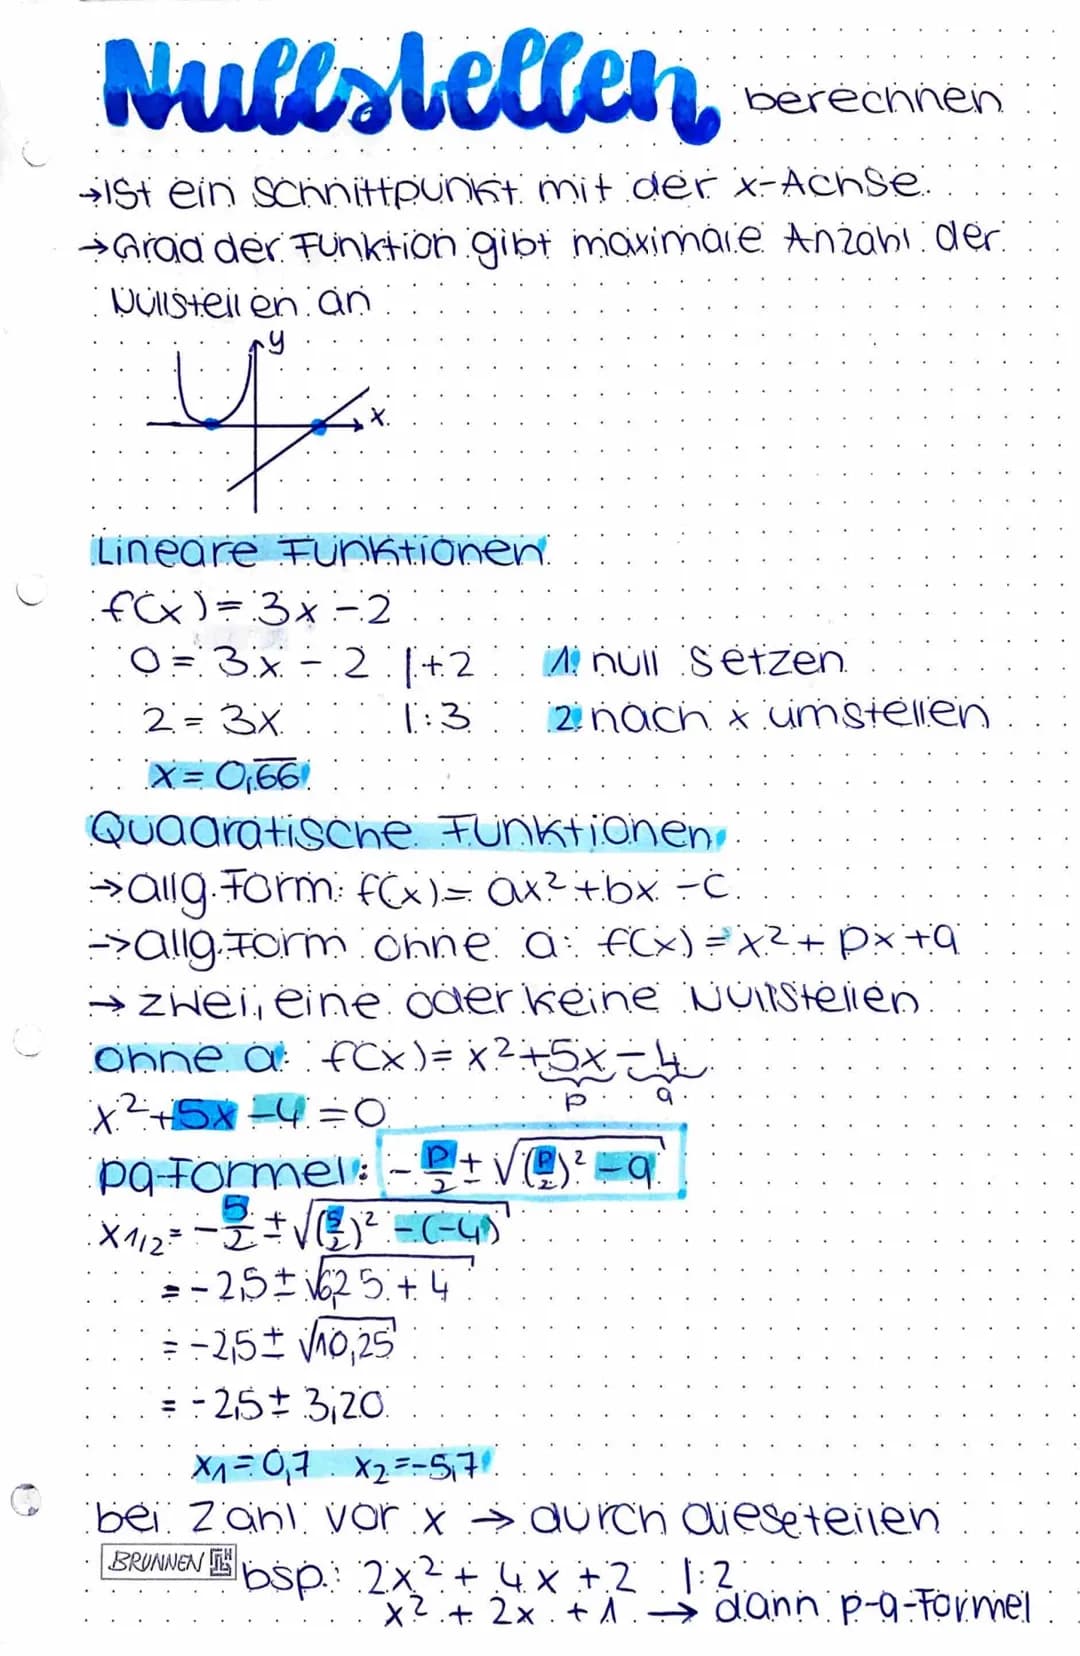 Nullstellen berechnen
→Ist ein Schnittpunkt mit der x-Achse.
→Grad der Funktion gibt maximale Anzahl der
Nullstellen an
y
x
Lineare Funktionen
f(x)=3x-2
0=3x-2 |+2 1. null setzen
2=3x |:3 2. nach x umstellen
x=0,6̅6̅
Quadratische Funktionen
→allg. Form: f(x)= ax²+bx-c
→allg. Form ohne a: f(x)=x²+px+q
→zwei, eine oder keine Nullstellen
ohne a: f(x)=x²+5x-4
p q
x²+5x-4=0
pq-Formel: -p/2±√(p/2)²-q
x1/2=-5/2±√(5/2)²-(-4)
=-2,5±√6,25+4
=-2,5±√10,25
=-2,5±3,20
x₁=0,7 x₂=-5,7
bei Zahl vor x → durch diese teilen
BRUNNEN
bsp.: 2x²+4x+2 |:2
x²+2x+1 → dann p-q-Formel